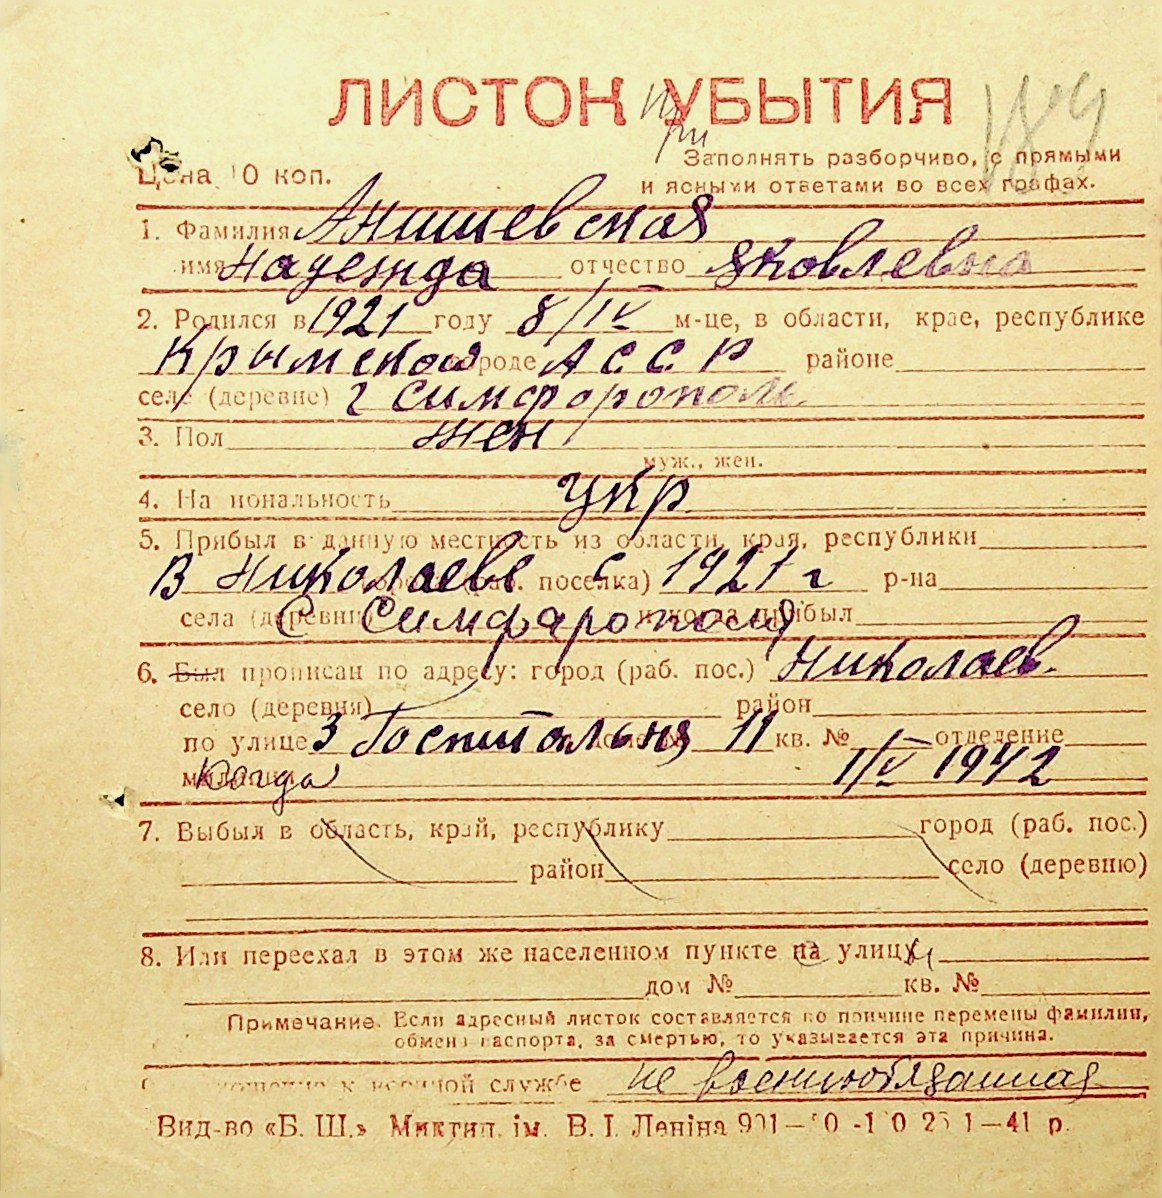 ЛИСТОК УБЫТИЯ
при
184
Цена 10 коп.
Заполнять разборчиво, с прямыми
и ясными ответами во всех графах.
1. Фамилия Анишевская
имя Надежда отчество Яковлевна
2. Родился в 1921 году 8/IV м-це, в области, крае, республике
Крымской городе А С С Р районе
селе (деревне) г Симфорополь
3. Пол жен
муж., жен.
4. Национальность укр
5. Прибыл в данную местность из области, края, республики
В Николаеве с 1921 г (раб. поселка) р-на
села (деревни) С Симфарополя и когда прибыл
6. Был прописан по адресу: город (раб. пос.) Николаев.
село (деревня) район
по улице 3 Госпитальня 11 кв. № отделение
милиции Когда 1/IV 1942
7. Выбыл в область, край, республику город (раб. пос.)
район село (деревню)
8. Или переехал в этом же населенном пункте на улицу
дом № кв. №
Примечание. Если адресный листок составляется по причине перемены фамилии,
обмена паспорта, за смертью, то указывается эта причина.
к военной службе не военнообязанная
Вид-во «Б. Ш.» Миктип. ім. В. І. Леніна 41 р.